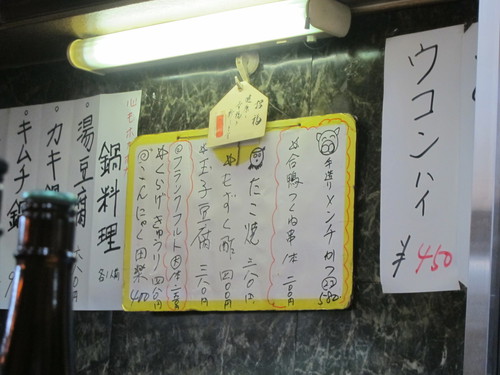 ウコンハイ
¥450
手造りメンチカツ 580
合鴨つくね串 1本 二〇〇円
たこ焼 三八〇円
もずく酢 四〇〇円
玉子豆腐 三八〇円
フランクフルト
くらげきゅうり 四〇〇円
こんにゃく田楽 400
鍋料理
湯豆腐
カキ鍋
キムチ鍋